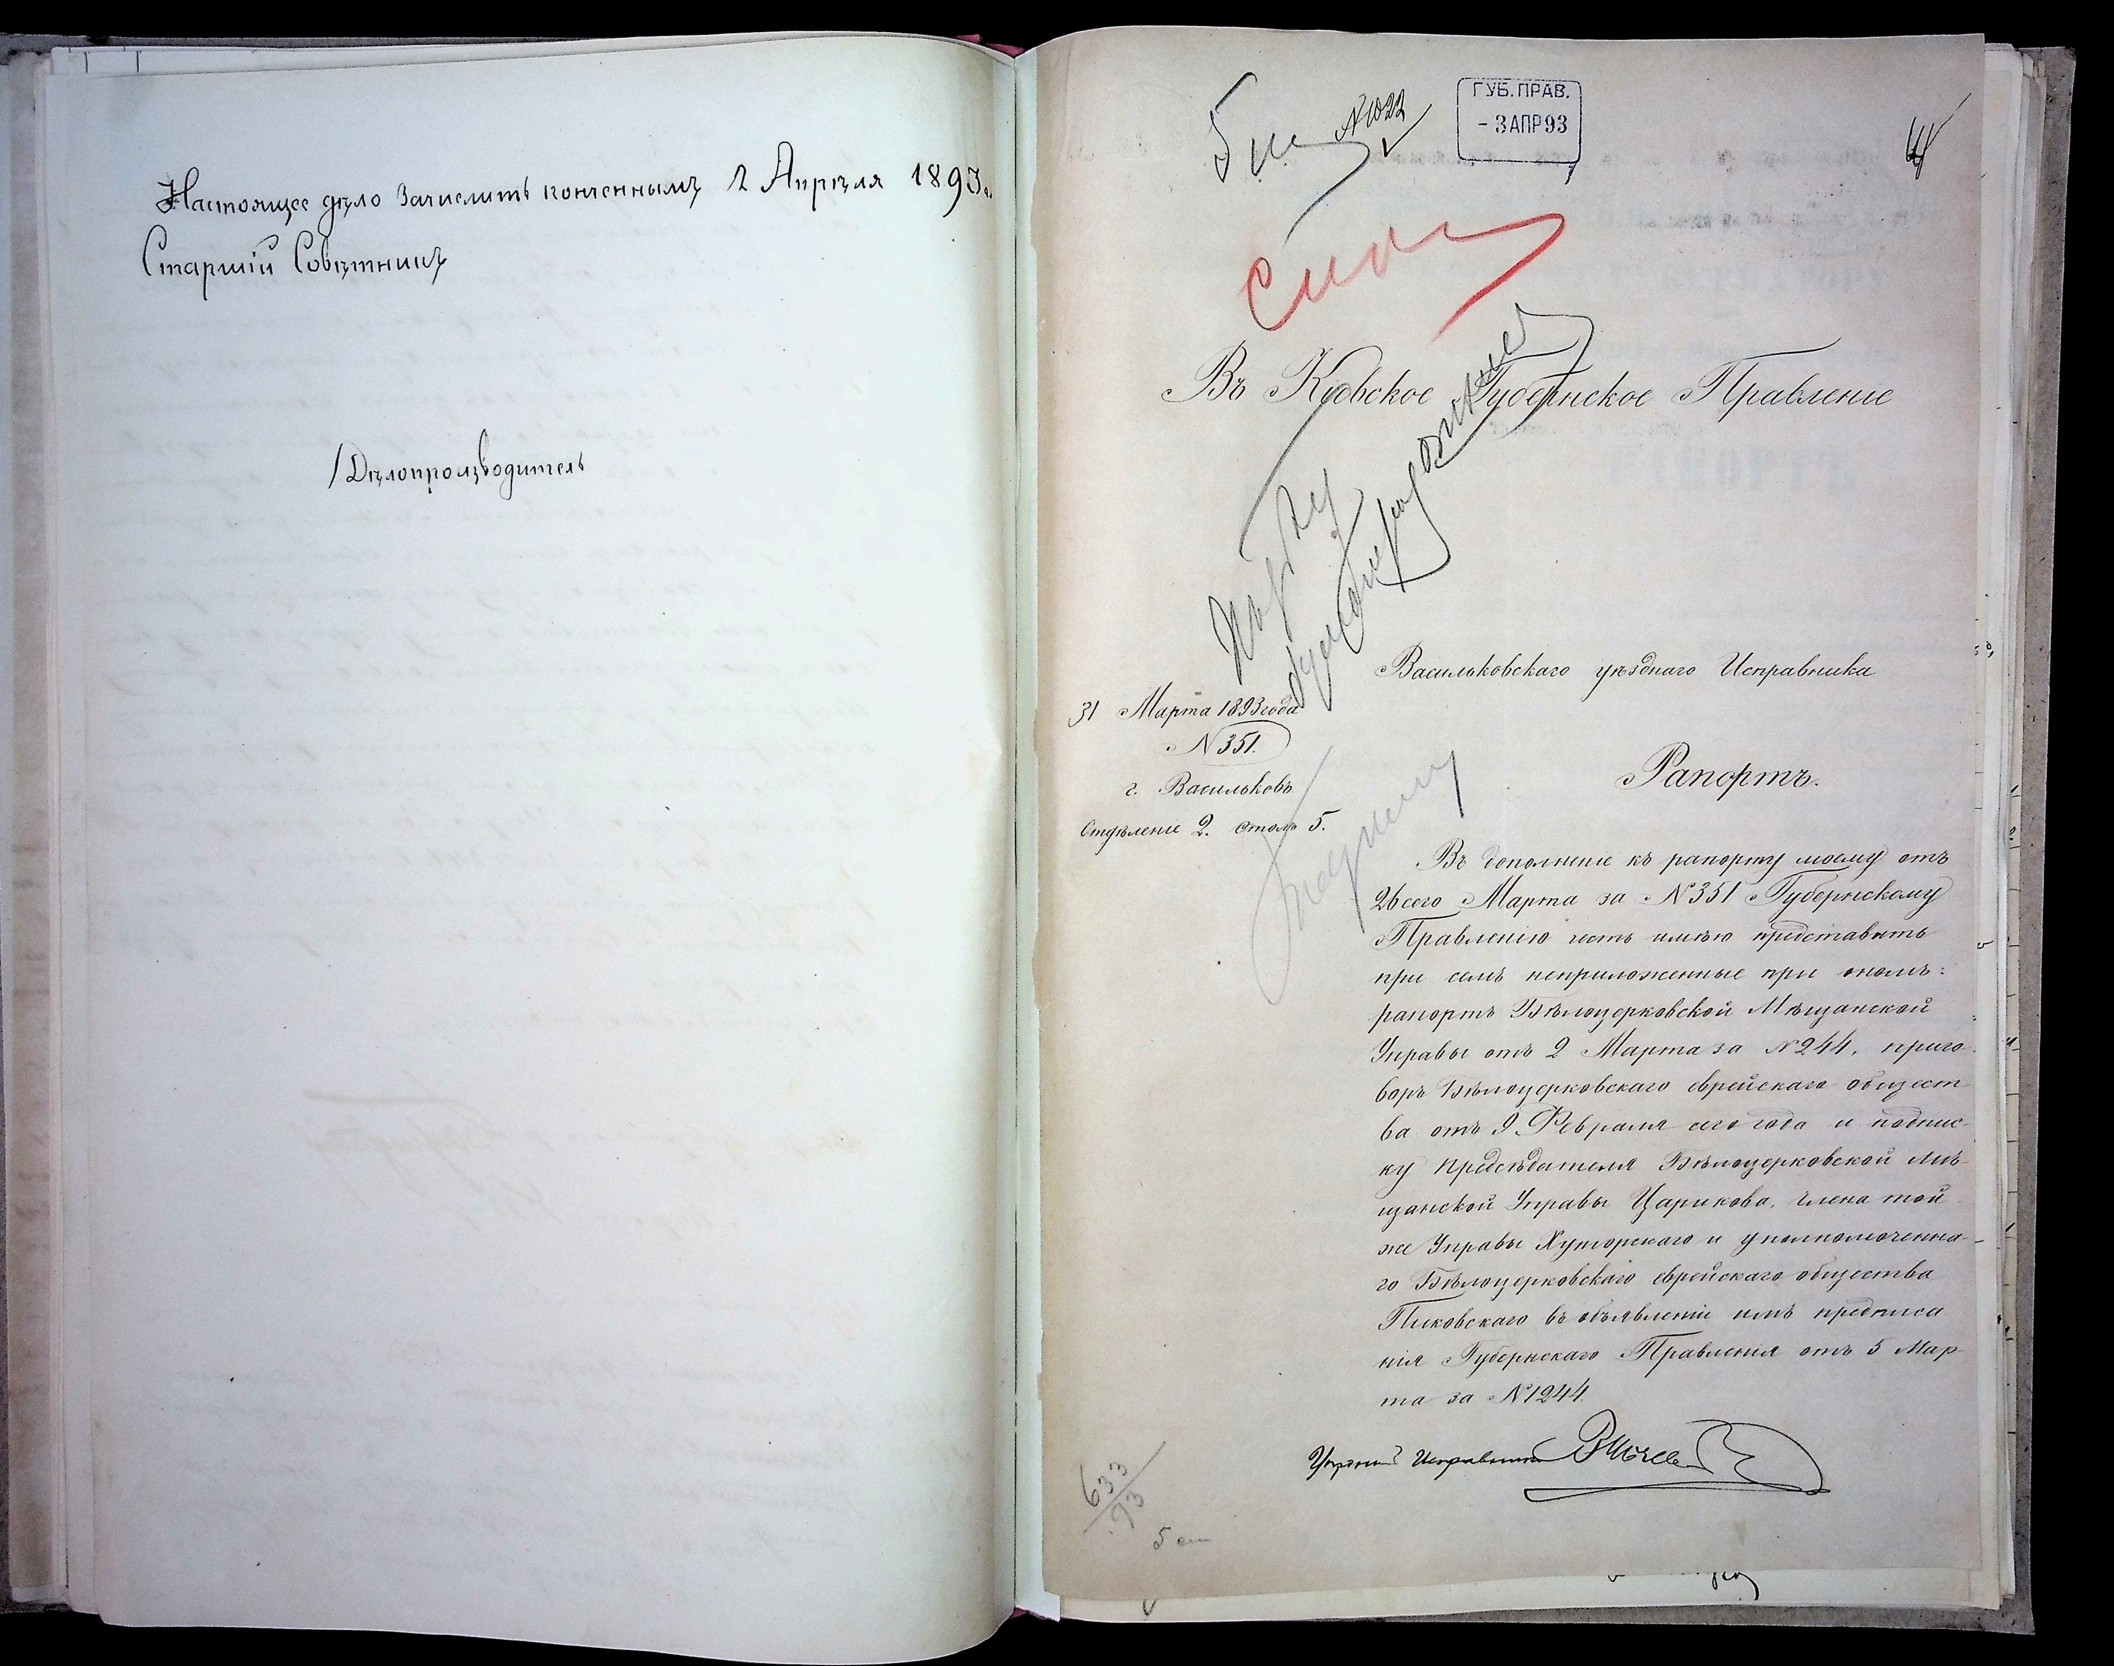 Настоящее дѣло зачислить конченнымъ 2 Апрѣля 1893 г.
Старшій Совѣтникъ
Дѣлопроизводитель
N 1022
ГУБ. ПРАВ.
- 3 АПР 93
Въ Кіевское Губернское Правленіе
Васильковскаго уѣзднаго Исправника
31 Марта 1893 года
N 351.
г. Васильковъ
Отдѣленіе 2. столъ 5.
Рапортъ.
Въ дополненіе къ рапорту моему отъ
26 сего Марта за N 351 Губернскому
Правленію честь имѣю представить
при семъ неприложенные при ономъ:
рапортъ Бѣлоцерковской Мѣщанской
Управы отъ 2 Марта за N 244, приго-
воръ Бѣлоцерковскаго еврейскаго общест-
ва отъ 9 Февраля сего года и подпис-
ку предсѣдателя Бѣлоцерковской мѣ-
щанской Управы Царикова, члена той
же Управы Хуторскаго и уполномоченна-
го Бѣлоцерковскаго еврейскаго общества
Пиковскаго въ объявленіи имъ предписа
нія Губернскаго Правленія отъ 5 Мар-
та за N 1244.
Уѣздный Исправникъ
633/93
5 ст